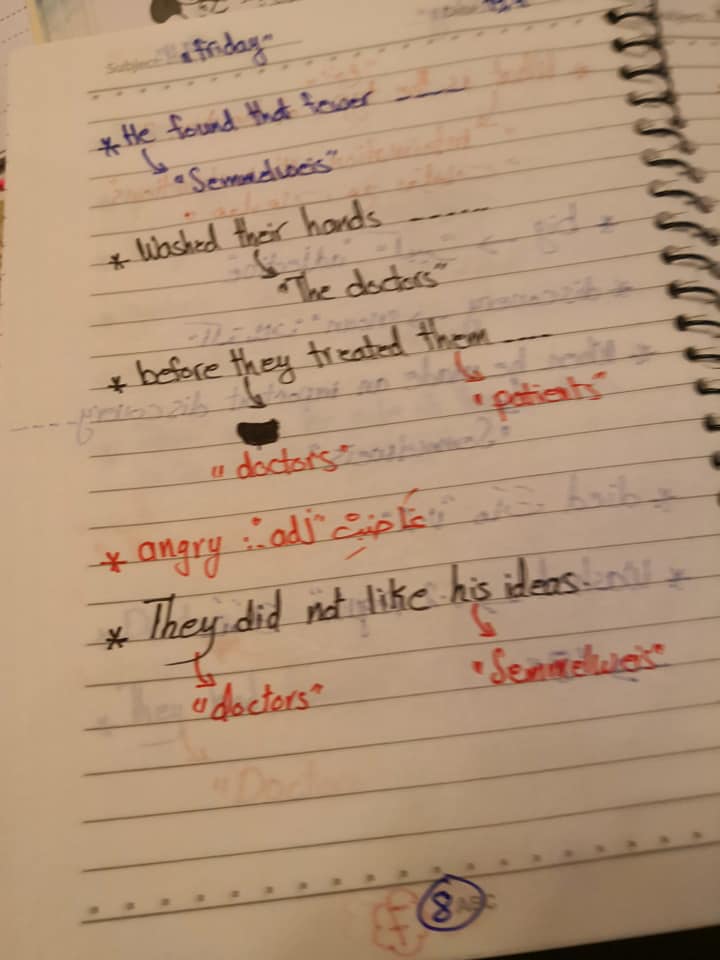 Subject "friday"
* He found that fewer ----
"Semmelweis"
* Washed their hands -----
"The doctors"
* before they treated them ----
"patients"
"doctors"
* angry : adj "غاضب"
* They did not like his ideas.
"Semmelweis"
"doctors"
8